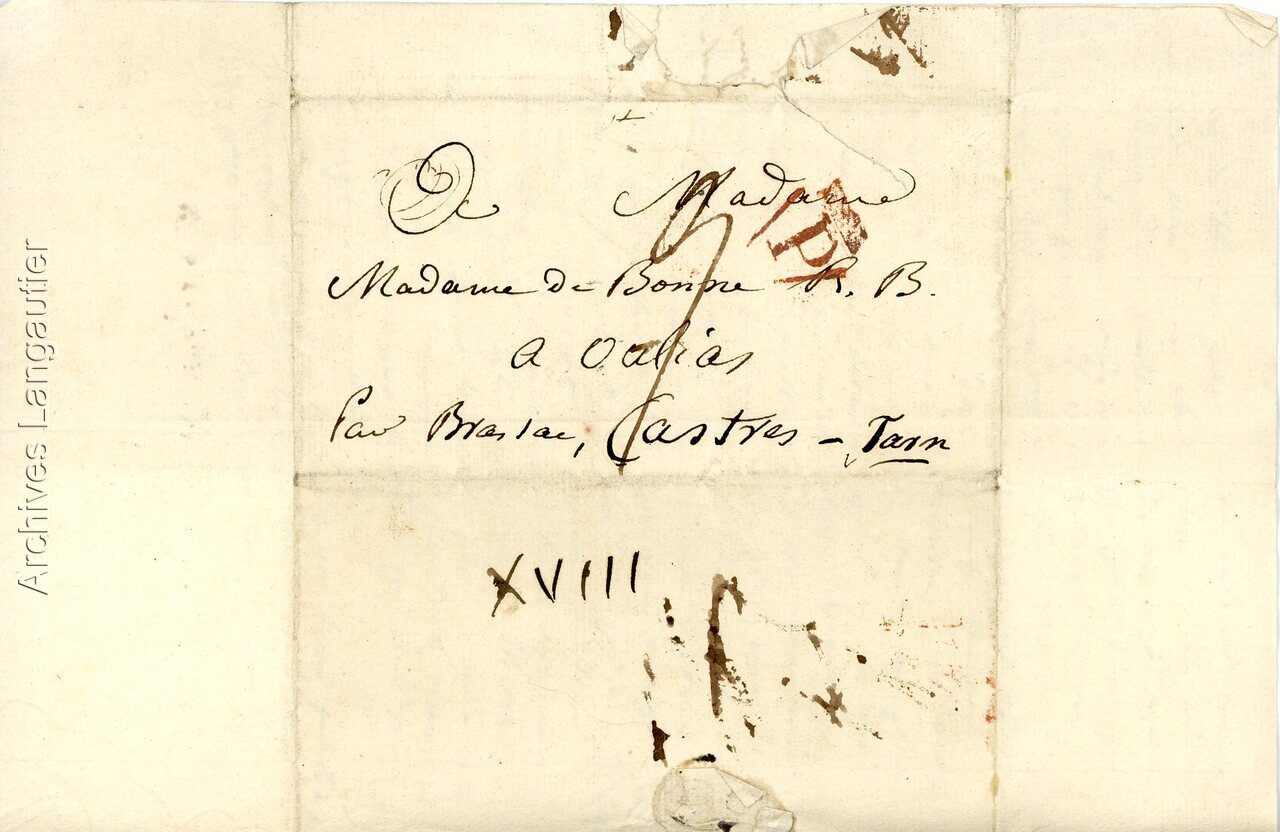 De Madame
Madame de Bonne R. B.
a oulias
Par Brassac, Castres - Tarn
P
XVIII
Archives Langautier